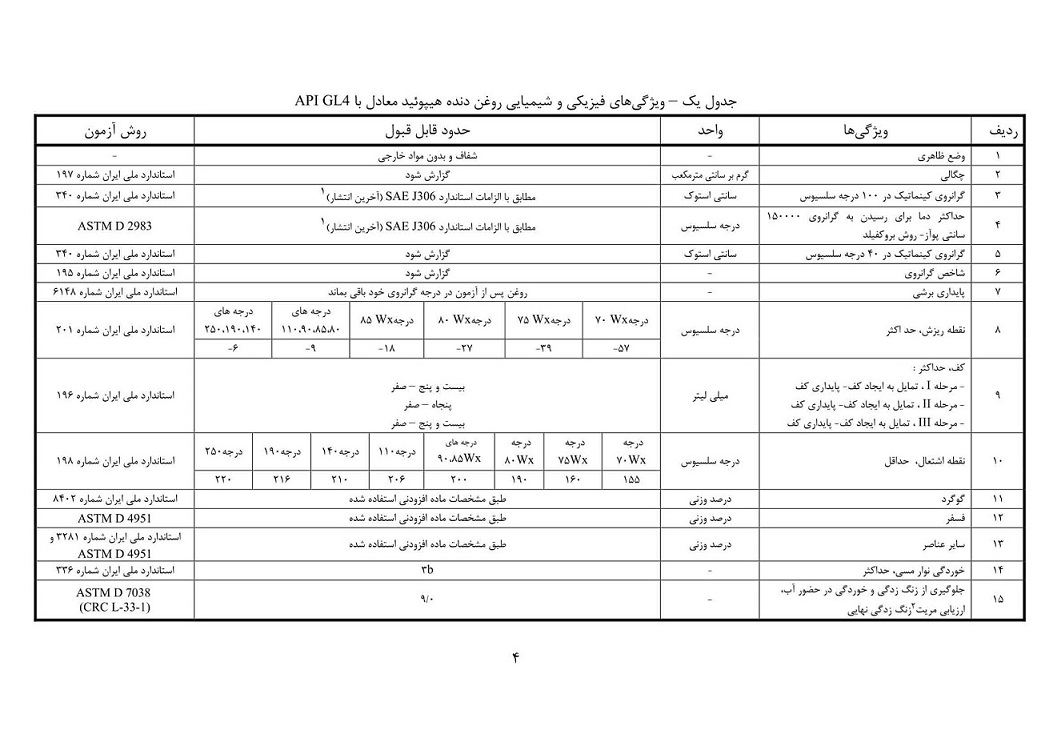 جدول یک – ویژگی‌های فیزیکی و شیمیایی روغن دنده هیپوئید معادل با API GL4
ردیف ویژگی‌ها واحد حدود قابل قبول روش آزمون
۱ وضع ظاهری - شفاف و بدون مواد خارجی -
۲ چگالی گرم بر سانتی مترمکعب گزارش شود استاندارد ملی ایران شماره ۱۹۷
۳ گرانروی کینماتیک در ۱۰۰ درجه سلسیوس سانتی استوک مطابق با الزامات استاندارد SAE J306 (آخرین انتشار)۱ استاندارد ملی ایران شماره ۳۴۰
۴ حداکثر دما برای رسیدن به گرانروی ۱۵۰۰۰۰
سانتی پوآز- روش بروکفیلد درجه سلسیوس مطابق با الزامات استاندارد SAE J306 (آخرین انتشار)۱ ASTM D 2983
۵ گرانروی کینماتیک در ۴۰ درجه سلسیوس سانتی استوک گزارش شود استاندارد ملی ایران شماره ۳۴۰
۶ شاخص گرانروی - گزارش شود استاندارد ملی ایران شماره ۱۹۵
۷ پایداری برشی - روغن پس از آزمون در درجه گرانروی خود باقی بماند استاندارد ملی ایران شماره ۶۱۴۸
۸ نقطه ریزش، حد اکثر درجه سلسیوس استاندارد ملی ایران شماره ۲۰۱
درجه۷۰ Wx درجه۷۵ Wx درجه۸۰ Wx درجه۸۵ Wx درجه های ۱۱۰،۹۰،۸۵،۸۰ درجه های ۲۵۰،۱۹۰،۱۴۰
-۵۷ -۳۹ -۲۷ -۱۸ -۹ -۶
۹ کف، حداکثر : میلی لیتر استاندارد ملی ایران شماره ۱۹۶
- مرحله I ، تمایل به ایجاد کف- پایداری کف بیست و پنج – صفر
- مرحله II ، تمایل به ایجاد کف- پایداری کف پنجاه – صفر
- مرحله III ، تمایل به ایجاد کف- پایداری کف بیست و پنج – صفر
۱۰ نقطه اشتعال، حداقل درجه سلسیوس استاندارد ملی ایران شماره ۱۹۸
درجه ۷۰Wx درجه ۷۵Wx درجه ۸۰Wx درجه های ۹۰،۸۵Wx درجه۱۱۰ درجه۱۴۰ درجه۱۹۰ درجه۲۵۰
۱۵۵ ۱۶۰ ۱۹۰ ۲۰۰ ۲۰۶ ۲۱۰ ۲۱۶ ۲۲۰
۱۱ گوگرد درصد وزنی طبق مشخصات ماده افزودنی استفاده شده استاندارد ملی ایران شماره ۸۴۰۲
۱۲ فسفر درصد وزنی طبق مشخصات ماده افزودنی استفاده شده ASTM D 4951
۱۳ سایر عناصر درصد وزنی طبق مشخصات ماده افزودنی استفاده شده استاندارد ملی ایران شماره ۳۲۸۱ و
ASTM D 4951
۱۴ خوردگی نوار مسی، حداکثر - ۳b استاندارد ملی ایران شماره ۳۳۶
۱۵ جلوگیری از زنگ زدگی و خوردگی در حضور آب،
ارزیابی مریت۲زنگ زدگی نهایی - ۹/۰ ASTM D 7038
(CRC L-33-1)
۴